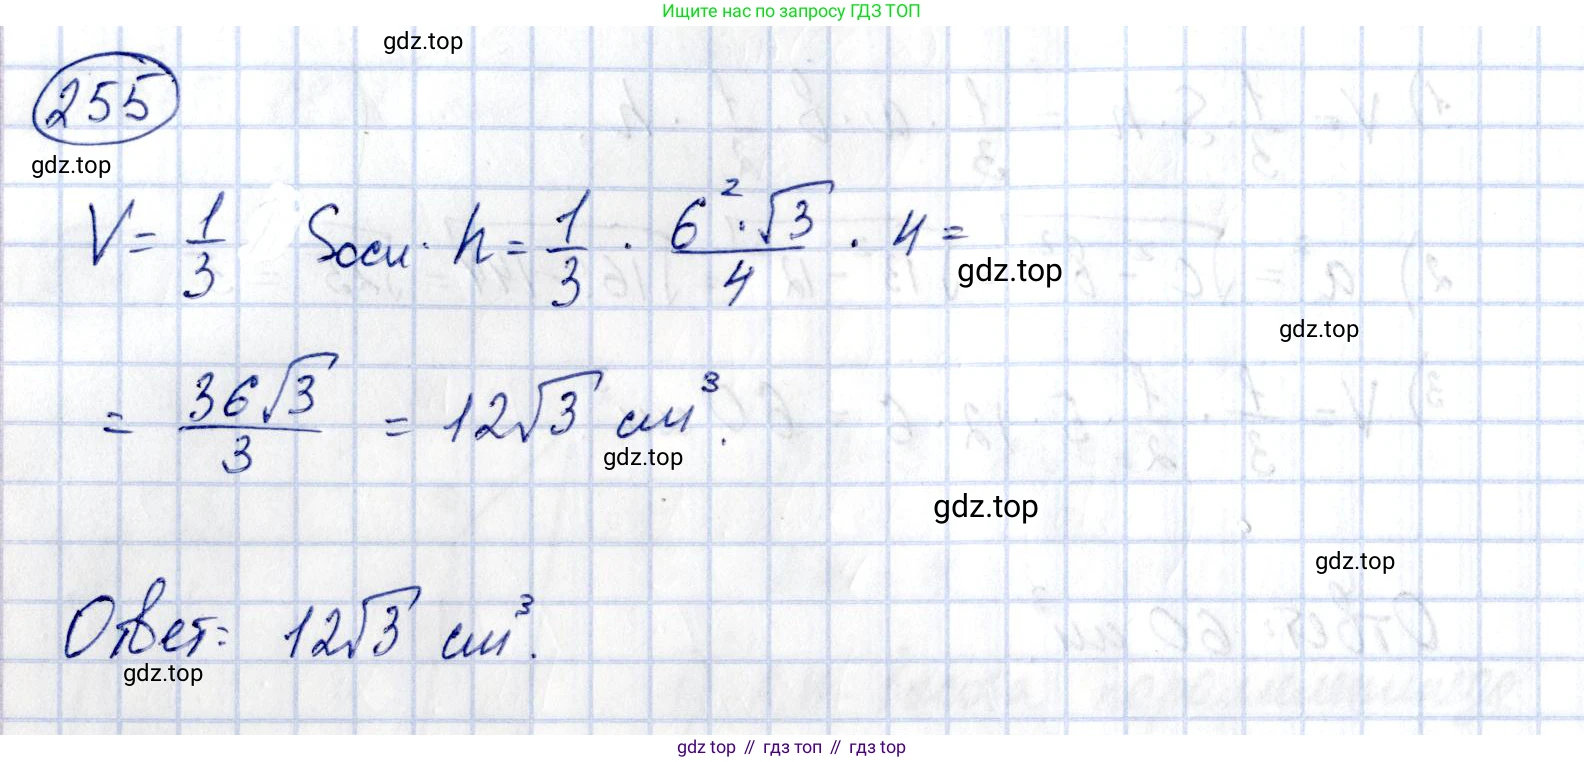 Ищите нас по запросу ГДЗ ТОП
gdz.top
255
gdz.top
V = 1/3 Sосн · h = 1/3 · 6² · √3/4 · 4 =
gdz.top
gdz.top
= 36√3/3 = 12√3 см³.
gdz.top
gdz.top
gdz.top
Ответ: 12√3 см³.
gdz.top
gdz top // гдз топ // гдз top